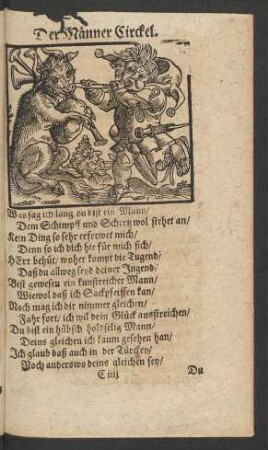 Der Männer Circkel.
Was sag ich lang du bist ein Mann/
Dem Schimpff und Schertz wol stehet an/
Kein Ding so sehr erfrewet mich/
Denn so ich dich hie für mich sich/
HErr behüt/ woher kompt die Tugend/
Daß du allweg seyd deiner Jugend/
Bist gewesen ein kunstreicher Mann/
Wiewol daß ich Sackpfeiffen kan/
Noch mag ich dir nimmer gleichen/
Fahr fort/ ich wil dein Glück ausstreichen/
Du bist ein hübsch holdselig Mann/
Deins gleichen ich kaum gesehen han/
Ich glaub daß auch in der Türckey/
Noch anderswo deins gleichen sey/
C iiij Du